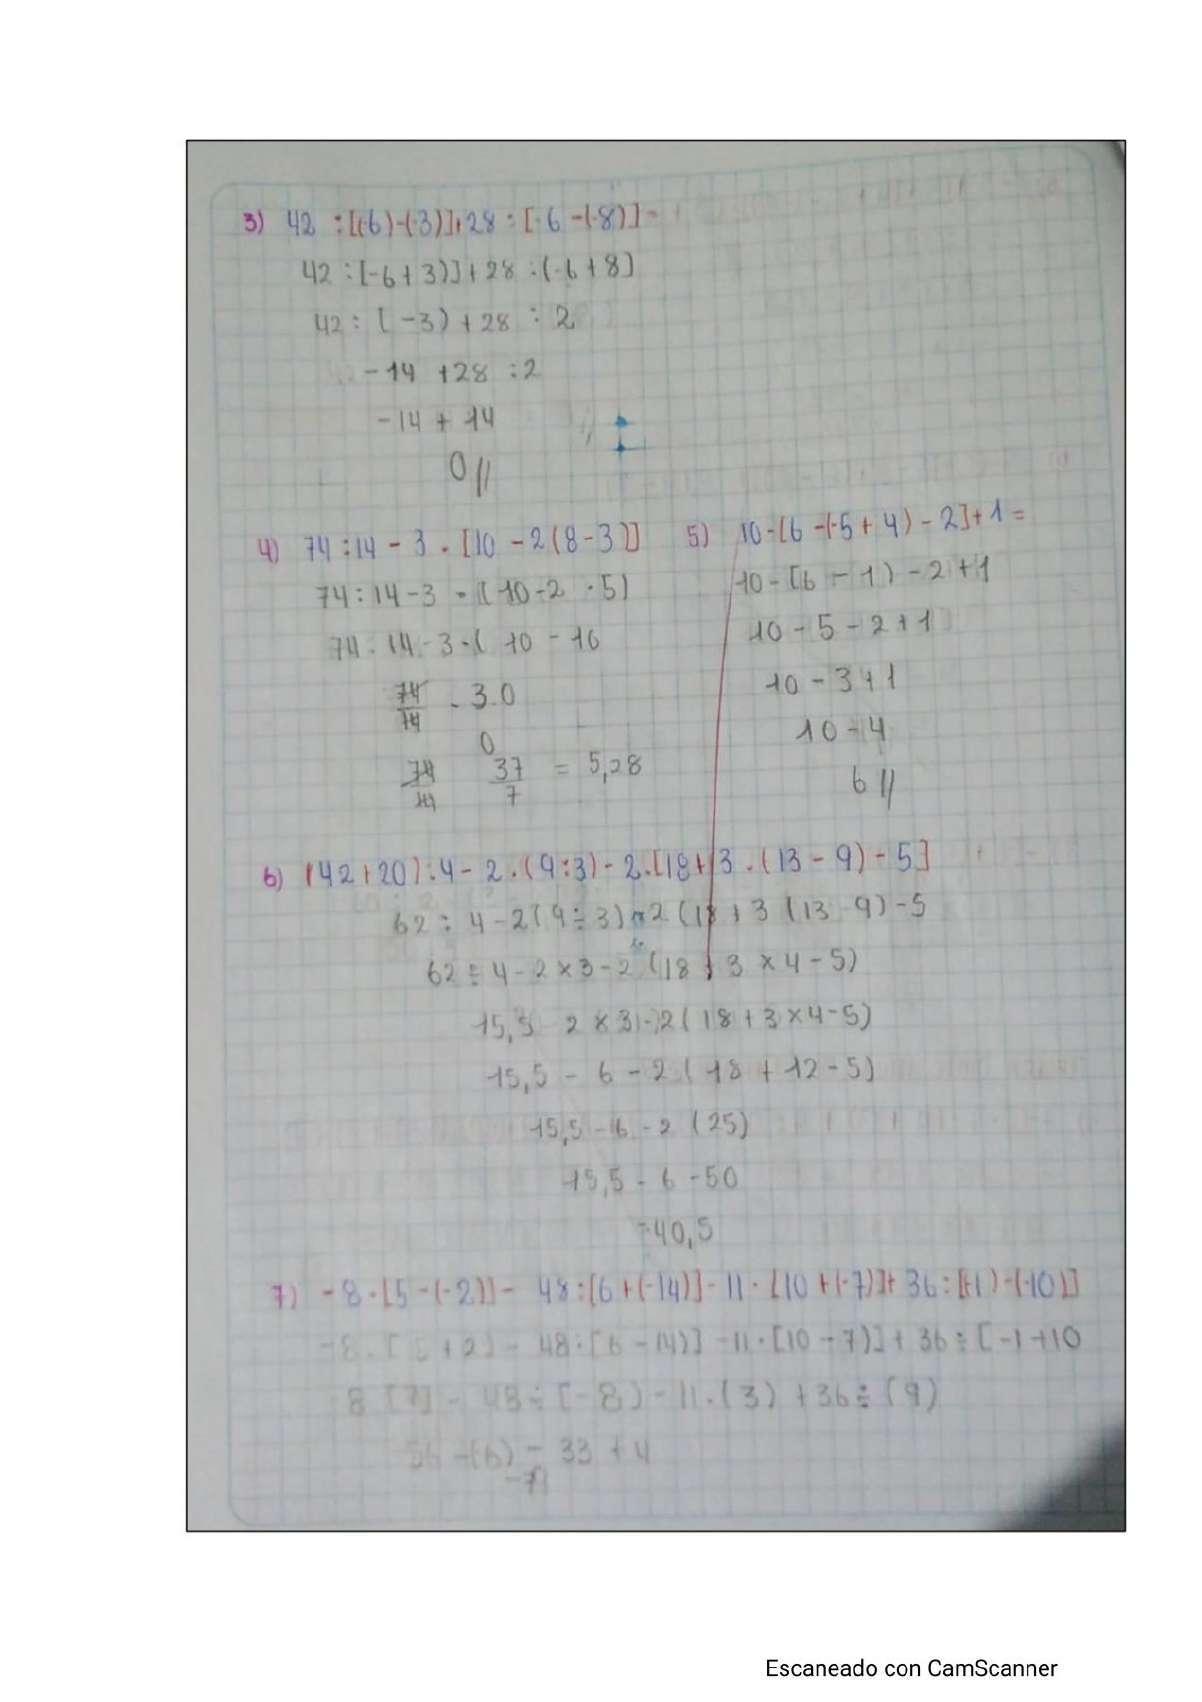 3) 42 :[(-6)-(-3)]+28 : [-6-(-8)] =
42 :[-6+3)]+28 :(-6+8]
42 : [-3)+28 : 2
-14 +28 :2
-14 + 14
0//
4) 74:14 - 3 · [10 - 2(8-3)]
74:14-3 · [10-2 · 5)
74:14-3·( 10 - 10
74/14 - 3.0
0
74/14 37/7 = 5,28
5) 10-[6-(-5+4)-2]+1=
10-[6-1)-2+1
10-5-2+1
10-3+1
10-4
6//
6) (42+20):4-2·(9:3)-2·[18+3·(13-9)-5]
62÷4-2(9÷3)-2(18+3(13-9)-5
62÷4-2×3-2(18+3×4-5)
15,5 2×3)-2(18+3×4-5)
15,5-6-2(18+12-5)
15,5-6-2(25)
15,5-6-50
-40,5
7) -8·[5-(-2)]-48:[6+(-14)]-11·[10+(-7)]+36:[(-1)-(-10)]
-8·[5+2]-48:[6-14)]-11·[10-7)]+36÷[-1+10
8[7]-48÷[-8)-11·(3)+36÷(9)
56-(6)-33+4
Escaneado con CamScanner